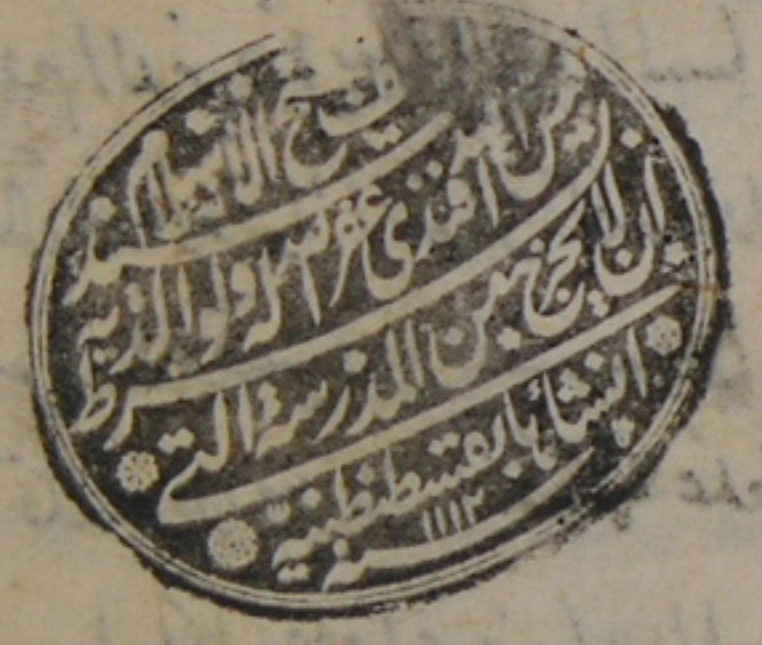 شيخ الاسلام
السيد فيض الله افندى غفر الله له ولوالديه
بشرط ان لا يخرج من المدرسة التى
انشأها بقسطنطينية
سنة ١١١٢